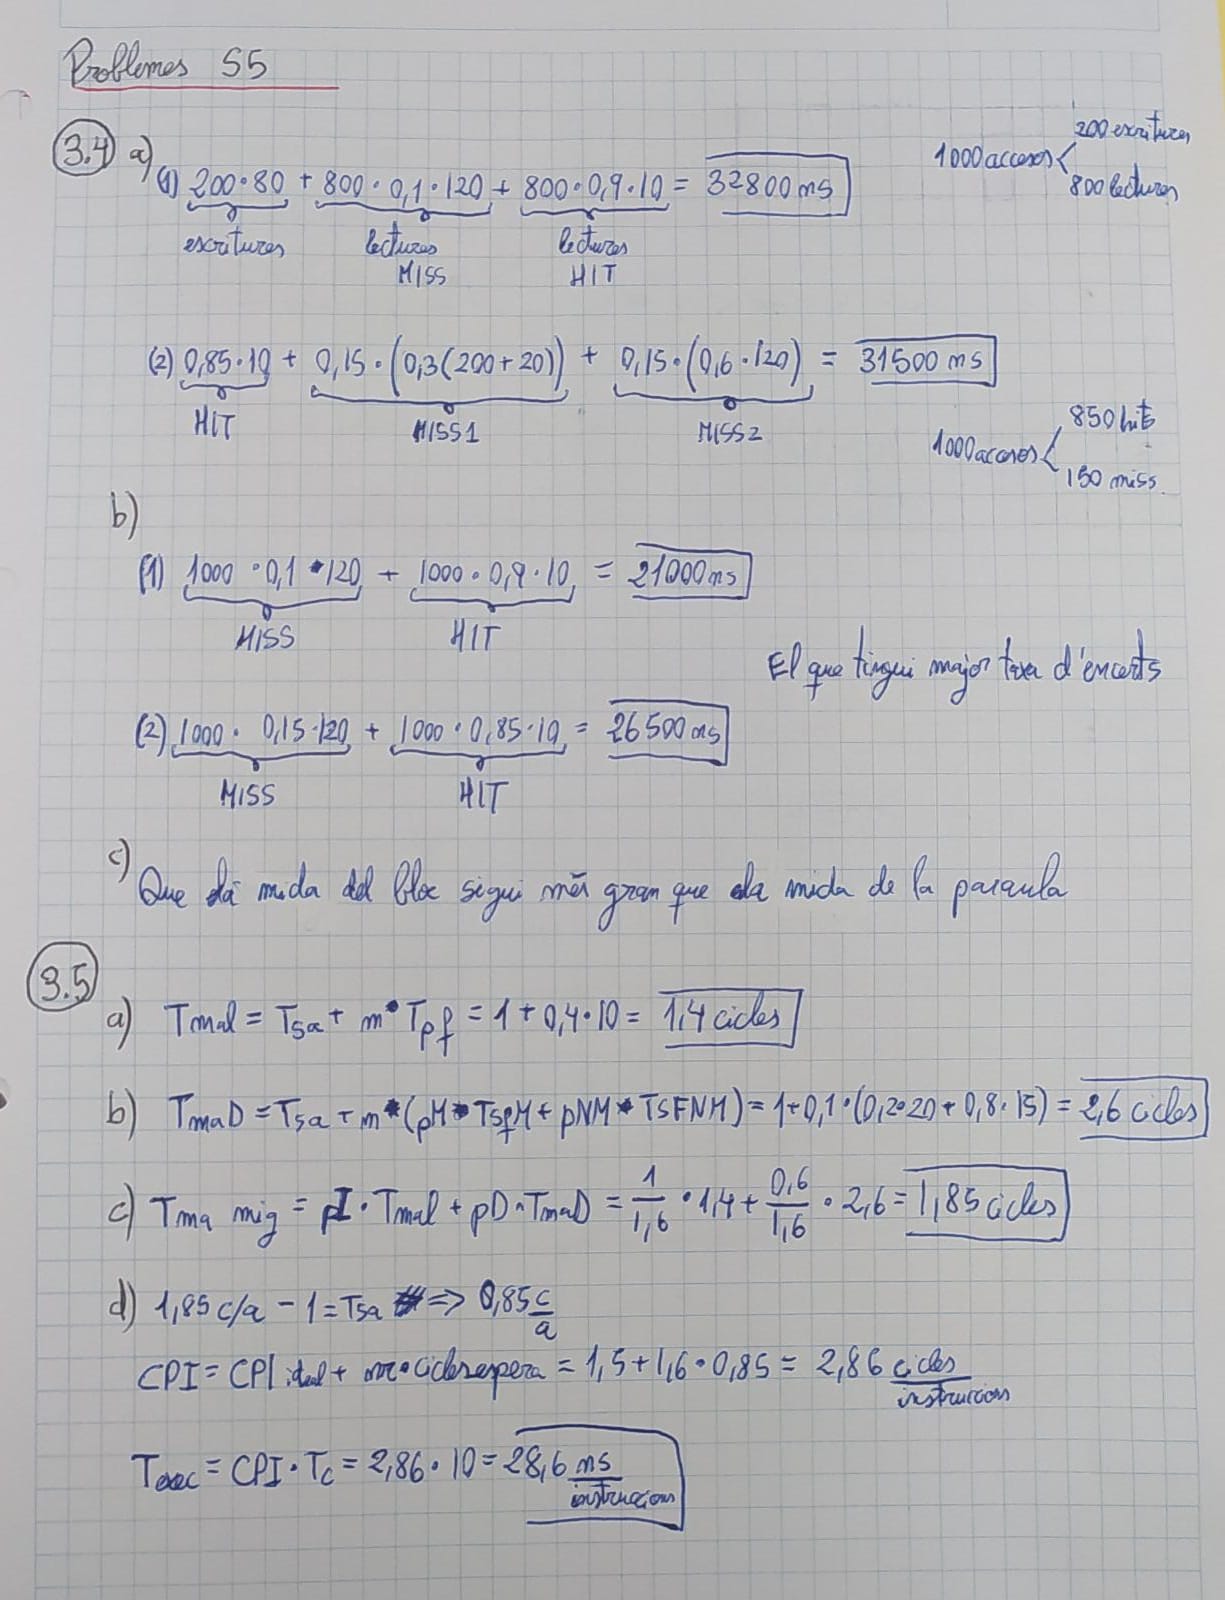 Problemes S5
3.4 a)
(1) 200·80 + 800·0,1·120 + 800·0,9·10 = 32800 ns
escritures lectures MISS lectures HIT
1000 accesos < 200 escritures
800 lectures
(2) 0,85·10 + 0,15·(0,3(200+20)) + 0,15·(0,6·120) = 31500 ns
HIT MISS1 MISS2
1000 accesos < 850 hits
150 miss
b)
(1) 1000·0,1·120 + 1000·0,9·10 = 21000 ns
MISS HIT
El que tingui major taxa d'encerts
(2) 1000·0,15·120 + 1000·0,85·10 = 26500 ns
MISS HIT
c)
Que la mida del bloc sigui més gran que la mida de la paraula
3.5
a) TmaI = Tsa + m·Tpf = 1 + 0,4·10 = 1,4 cicles
b) TmaD = Tsa + m·(pM·TsfM + pNM·TSFNM) = 1+0,1·(0,2·20 + 0,8·15) = 2,6 cicles
c) Tma mig = pI·TmaI + pD·TmaD = 1/1,6 · 1,4 + 0,6/1,6 · 2,6 = 1,85 cicles
d) 1,85 c/a - 1 = Tsa => 0,85 c/a
CPI = CPI ideal + nr·ciclesespera = 1,5 + 1,6·0,85 = 2,86 cicles/instruccions
Texec = CPI·Tc = 2,86·10 = 28,6 ns/instruccions